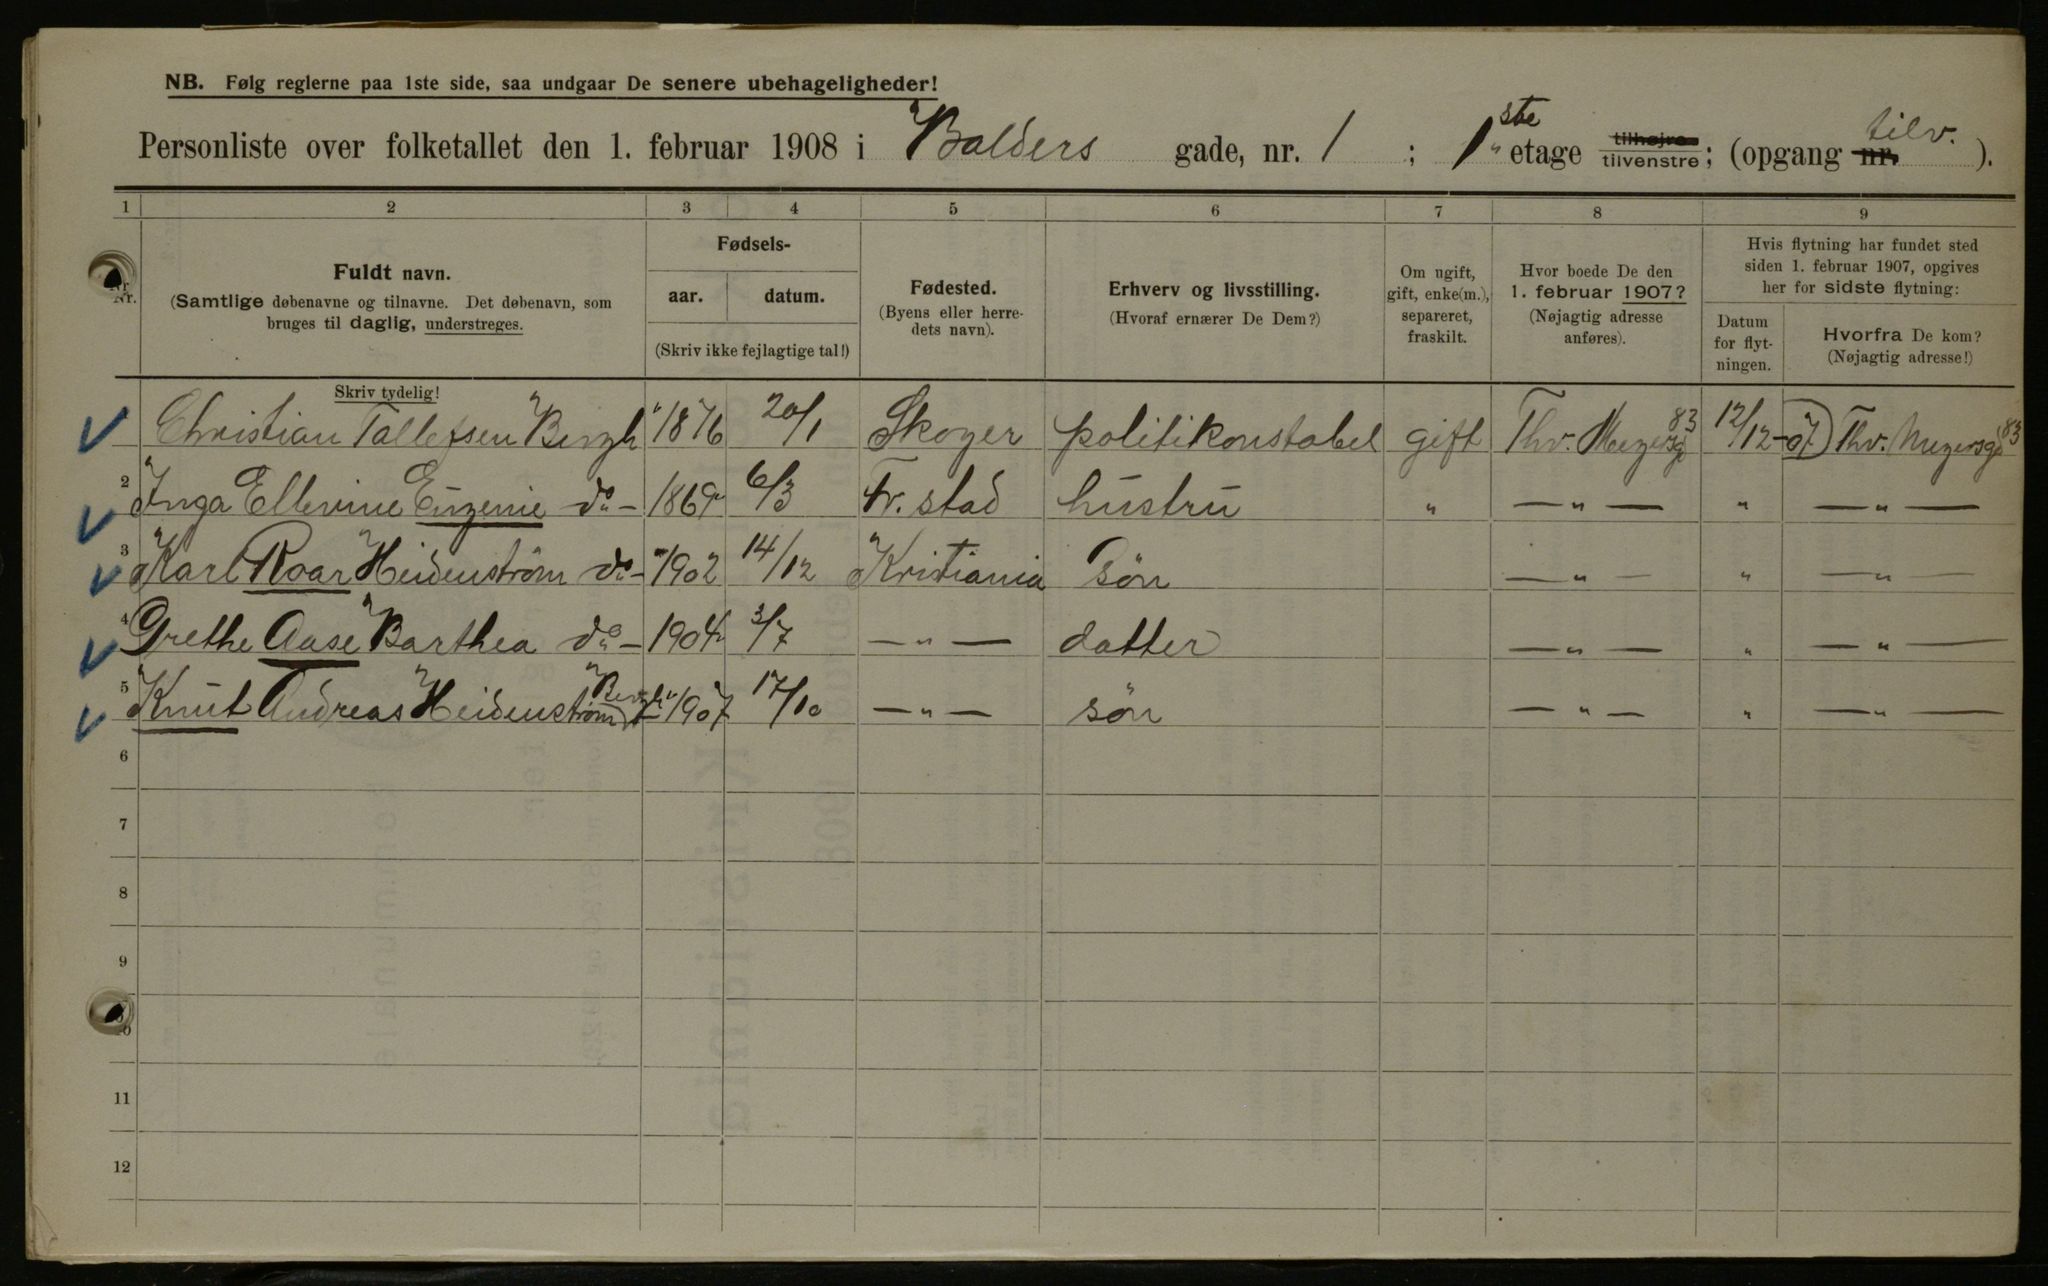 NB. Følg reglerne paa 1ste side, saa undgaar De senere ubehageligheder!
Personliste over folketallet den 1. februar 1908 i Balders gade, nr. 1 ; 1ste etage tilhøjre tilvenstre; (opgang nr. tilv. ).
1 2 3 4 5 6 7 8 9
Nr.
Fuldt navn.
(Samtlige døbenavne og tilnavne. Det døbenavn, som
bruges til daglig, understreges.
Skriv tydelig!
Fødsels-
aar. datum.
(Skriv ikke fejlagtige tal!)
Fødested.
(Byens eller herre-
dets navn).
Erhverv og livsstilling.
(Hvoraf ernærer De Dem?)
Om ugift,
gift, enke(m.),
separeret,
fraskilt.
Hvor boede De den
1. februar 1907?
(Nøjagtig adresse
anføres).
Hvis flytning har fundet sted
siden 1. februar 1907, opgives
her for sidste flytning:
Datum
for flyt-
ningen.
Hvorfra De kom?
(Nøjagtig adresse!)
Christian Tallefsen Bergh 1876 20/1 Skoger politikonstabel gift Thv. Meyersg 83 12/12-07 Thv. Meyersg 83
2 Inga Ellevine Eugenie do - 1869 6/3 Fr. stad hustru " — " — " — " —
3 Karl Roar Heidenström do - 1902 14/12 Kristiania søn — " — " — " —
4 Grethe Aase Barthea do - 1904 3/7 — " — datter — " — " — " —
5 Knut Andreas Heidenström Bergh 1907 17/10 — " — søn — " — " — " —
6
7
8
9
10
11
12